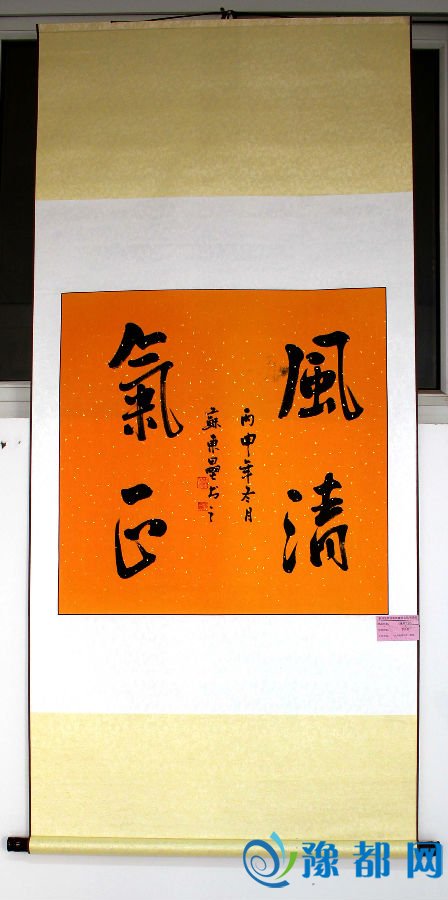 風清
氣正
丙申年冬月
蘇東墨书之
豫都网